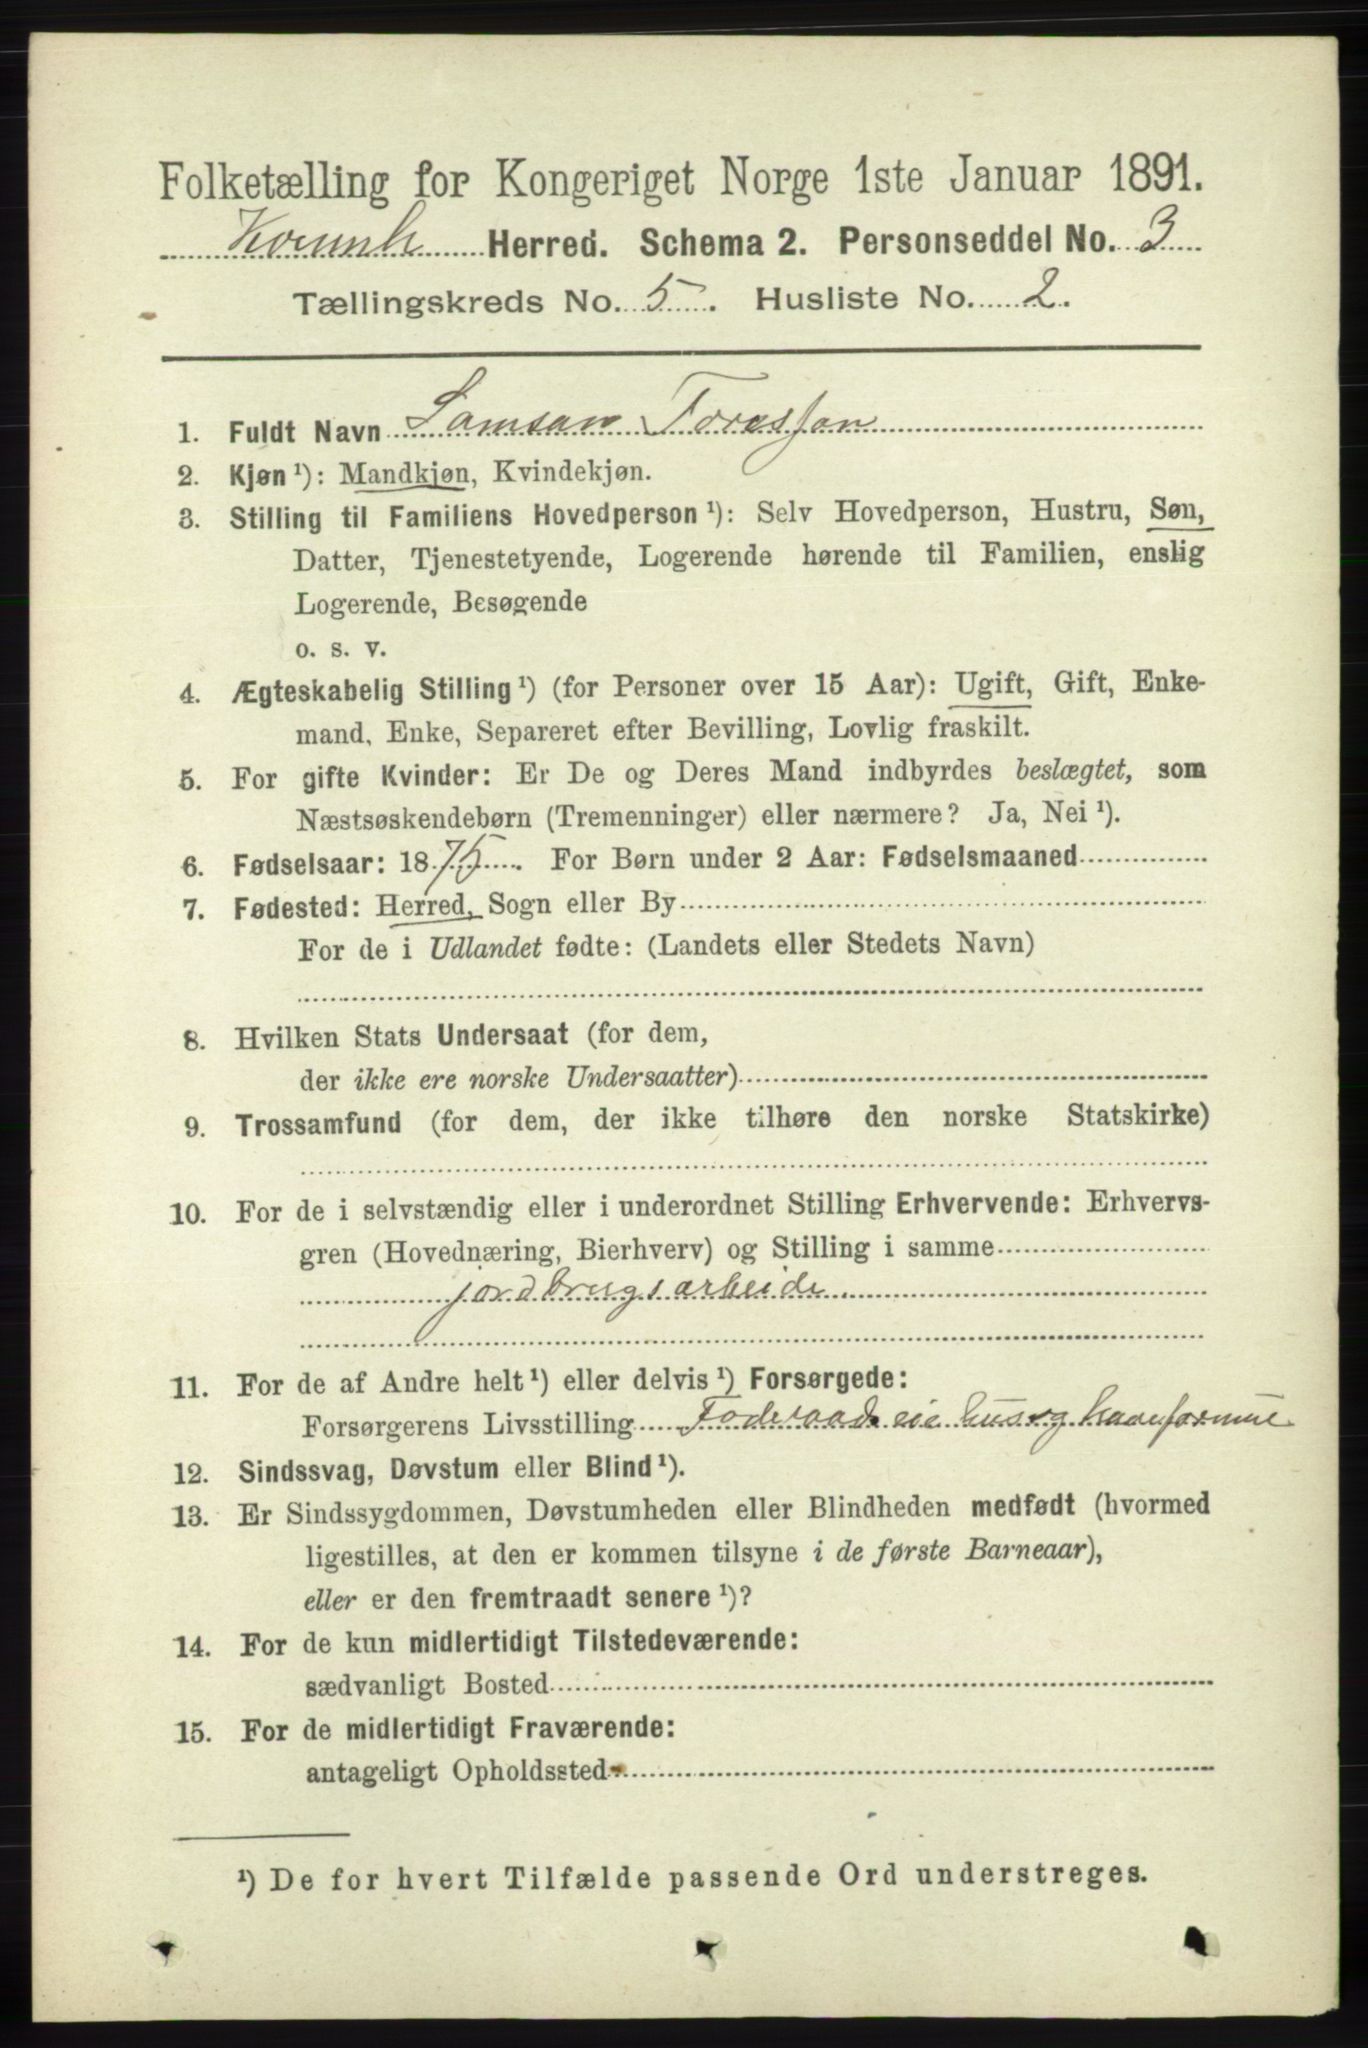 Folketælling for Kongeriget Norge 1ste Januar 1891.
Herred. Schema 2. Personseddel No. 3
Tællingskreds No. 5. Husliste No. 2.
1. Fuldt Navn Samson Toresson
2. Kjøn ¹): Mandkjøn, Kvindekjøn.
3. Stilling til Familiens Hovedperson ¹): Selv Hovedperson, Hustru, Søn,
Datter, Tjenestetyende, Logerende hørende til Familien, enslig
Logerende, Besøgende
o. s. v.
4. Ægteskabelig Stilling ¹) (for Personer over 15 Aar): Ugift, Gift, Enke-
mand, Enke, Separeret efter Bevilling, Lovlig fraskilt.
5. For gifte Kvinder: Er De og Deres Mand indbyrdes beslægtet, som
Næstsøskendebørn (Tremenninger) eller nærmere? Ja, Nei ¹).
6. Fødselsaar: 1875. For Børn under 2 Aar: Fødselsmaaned
7. Fødested: Herred, Sogn eller By
For de i Udlandet fødte: (Landets eller Stedets Navn)
8. Hvilken Stats Undersaat (for dem,
der ikke ere norske Undersaatter)
9. Trossamfund (for dem, der ikke tilhøre den norske Statskirke)
10. For de i selvstændig eller i underordnet Stilling Erhvervende: Erhvervs-
gren (Hovednæring, Bierhverv) og Stilling i samme
jordbrugsarbeide.
11. For de af Andre helt ¹) eller delvis ¹) Forsørgede:
Forsørgerens Livsstilling Foderaad
12. Sindssvag, Døvstum eller Blind ¹).
13. Er Sindssygdommen, Døvstumheden eller Blindheden medfødt (hvormed
ligestilles, at den er kommen tilsyne i de første Barneaar),
eller er den fremtraadt senere ¹)?
14. For de kun midlertidigt Tilstedeværende:
sædvanligt Bosted
15. For de midlertidigt Fraværende:
antageligt Opholdssted
¹) De for hvert Tilfælde passende Ord understreges.